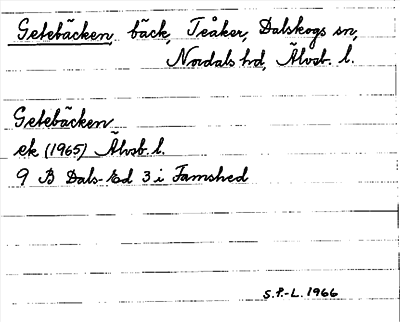 Getebäcken, bäck, Teåker, Dalskogs sn,
Nordals hd, Älvsb. l.
Getebäcken
ek (1965) Älvsb. l.
9 B Dals-Ed 3 i Famshed
S.P.-L. 1966